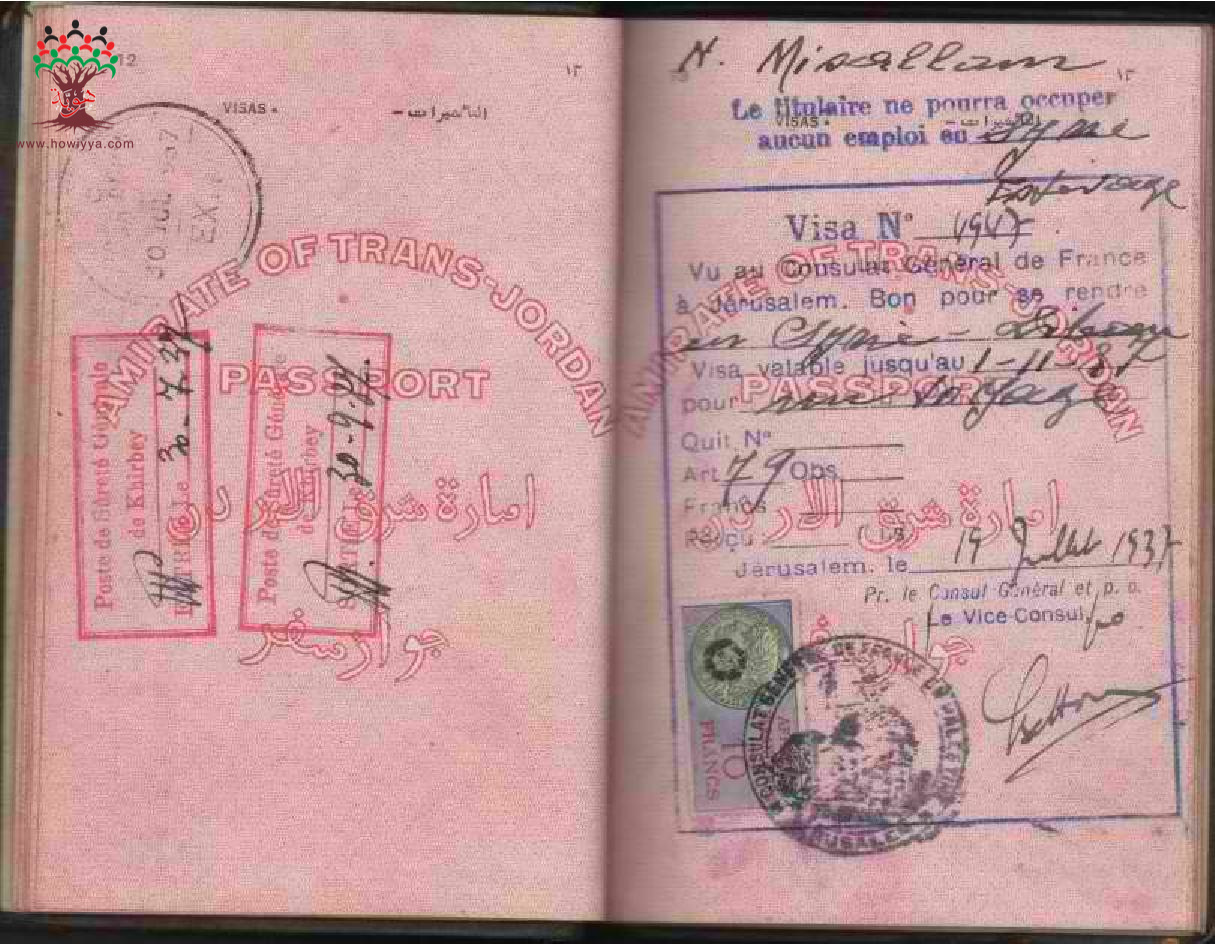 حوية
www.howiyya.com
12
١٣
VISAS.
التأشيرات -
30 JUL 937
EX
AMIRATE OF TRANS-JORDAN
PASSPORT
امارة شرق الاردن
جواز سفر
Poste de Sûreté Générale
de Khirbey
ENTRÉE Le 30-7-37
Poste de Sûreté Générale
de Khirbey
SORTIE Le 30-9-37
N. Misallam
١٣
Le titulaire ne pourra occuper
VISAS.
التأشيرات -
aucun emploi en Syrie
Estivage
Visa N° 1947
Vu au Consulat Général de France
à Jérusalem. Bon pour se rendre
en Syrie - Liban
Visa valable jusqu'au 1-11-37
pour un voyage
Quit N°
Art 79 Obs.
Francs
Perçu: Ls
Jérusalem, le 19 Juillet 1937
Pr. le Consul Général et p. o.
Le Vice-Consul
AMIRATE OF TRANS-JORDAN
PASSPORT
امارة شرق الاردن
جواز سفر
10
FRANCS
CONSULAT GENERAL DE FRANCE EN PALESTINE
JERUSALEM